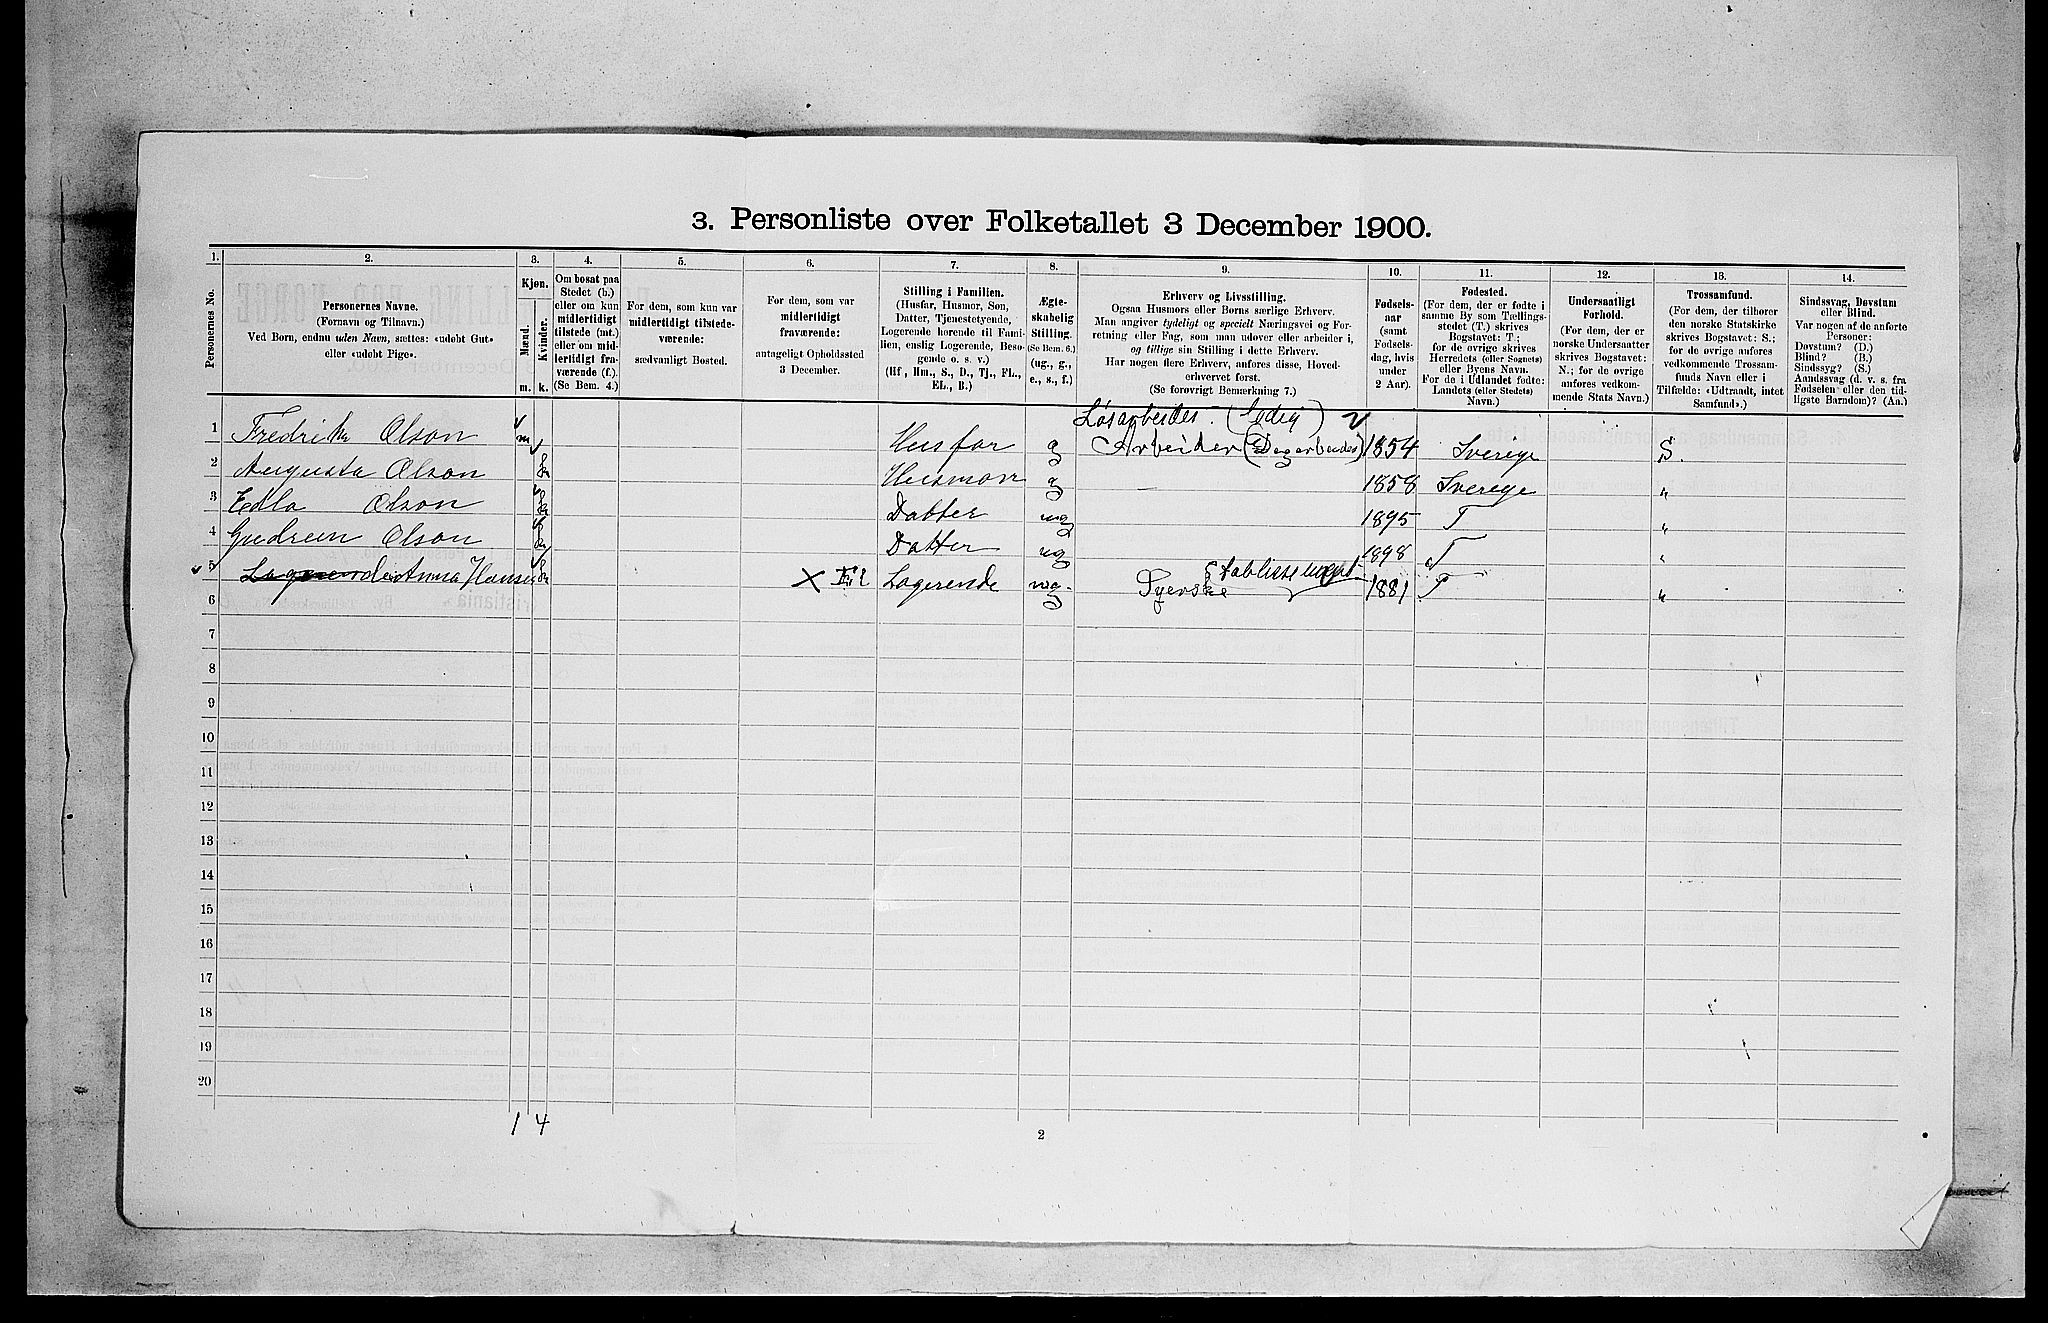 3. Personliste over Folketallet 3 December 1900.
1. 2. 3. 4. 5. 6. 7. 8. 9. 10. 11. 12. 13. 14.
Personernes No.
Personernes Navne.
(Fornavn og Tilnavn.)
Ved Børn, endnu uden Navn, sættes: «udøbt Gut»
eller «udøbt Pige».
Kjøn.
Mænd.
Kvinder.
m. k.
Om bosat paa
Stedet (b.)
eller om kun
midlertidigt
tilstede (mt.)
eller om mid-
lertidigt fra-
værende (f.).
(Se Bem. 4.)
For dem, som kun var
midlertidigt tilstede-
værende:
sædvanligt Bosted.
For dem, som var
midlertidigt
fraværende:
antageligt Opholdssted
3 December.
Stilling i Familien.
(Husfar, Husmor, Søn,
Datter, Tjenestetyende,
Logerende hørende til Fami-
lien, enslig Logerende, Besø-
gende o. s. v.)
(Hf, Hm., S., D., Tj., FL.,
EL., B.)
Ægte-
skabelig
Stilling.
(Se Bem. 6.)
(ug., g.,
e., s., f.)
Erhverv og Livsstilling.
Ogsaa Husmors eller Børns særlige Erhverv.
Man angiver tydeligt og specielt Næringsvei og For-
retning eller Fag, som man udøver eller arbeider i,
og tillige sin Stilling i dette Erhverv.
Har nogen flere Erhverv, anføres disse, Hoved-
erhvervet først.
(Se forøvrigt Bemerkning 7.)
Fødsels-
aar
(samt
Fødsels-
dag, hvis
under
2 Aar).
Fødested.
(For dem, der er fødte i
samme By som Tællings-
stedet (T.) skrives
Bogstavet: T.;
for de øvrige skrives
Herredets (eller Sognets)
eller Byens Navn.
For de i Udlandet fødte:
Landets (eller Stedets)
Navn.)
Undersaatligt
Forhold.
(For dem, der er
norske Undersaatter
skrives Bogstavet:
N.; for de øvrige
anføres vedkom-
mende Stats Navn.)
Trossamfund.
(For dem, der tilhører
den norske Statskirke
skrives Bogstavet: S.;
for de øvrige anføres
vedkommende Trossam-
funds Navn eller i
Tilfælde: «Udtraadt, intet
Samfund».)
Sindssvag, Døvstum
eller Blind.
Var nogen af de anførte
Personer:
Døvstum? (D.)
Blind? (B.)
Sindssyg? (S.)
Aandssvag (d. v. s. fra
Fødselen eller den tid-
ligste Barndom)? (Aa.)
Løsarbeider. (ledig)
1 Fredrik Olson m Husfar g Arbeider (Dagarbeider) 1854 Sverige S.
2 Augusta Olson k Husmor g — 1858 Sverige „
3 Edla Olson k Datter ug 1895 T „
4 Gudrun Olson k Datter ug 1898 T „
Etablissement
5 Logerende Anna Hansen k X Logerende ug. Syerske 1881 T „
6
7
8
9
10
11
12
13
14
15
16
17
18
19
20
1 4
2